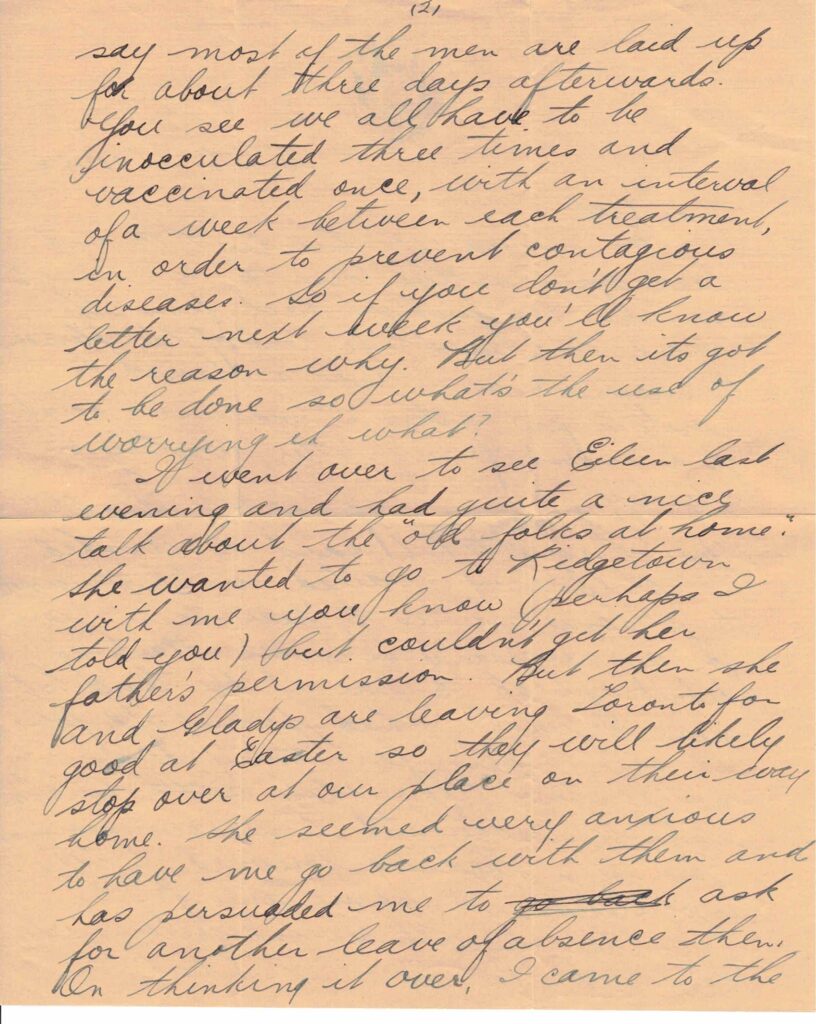 (2)
say most of the men are laid up
for about three days afterwards.
You see we all have to be
inocculated three times and
vaccinated once, with an interval
of a week between each treatment,
in order to prevent contagious
diseases. So if you don't get a
letter next week you'll know
the reason why. But then its got
to be done so what's the use of
worrying eh what?
I went over to see Eileen last
evening and had quite a nice
talk about the "old folks at home."
She wanted to go to Ridgetown
with me you know (perhaps I
told you) but couldn't get her
father's permission. But then she
and Gladys are leaving Toronto for
good at Easter so they will likely
stop over at our place on their way
home. She seemed very anxious
to have me go back with them and
has persuaded me to go back ask
for another leave of absence then.
On thinking it over, I came to the